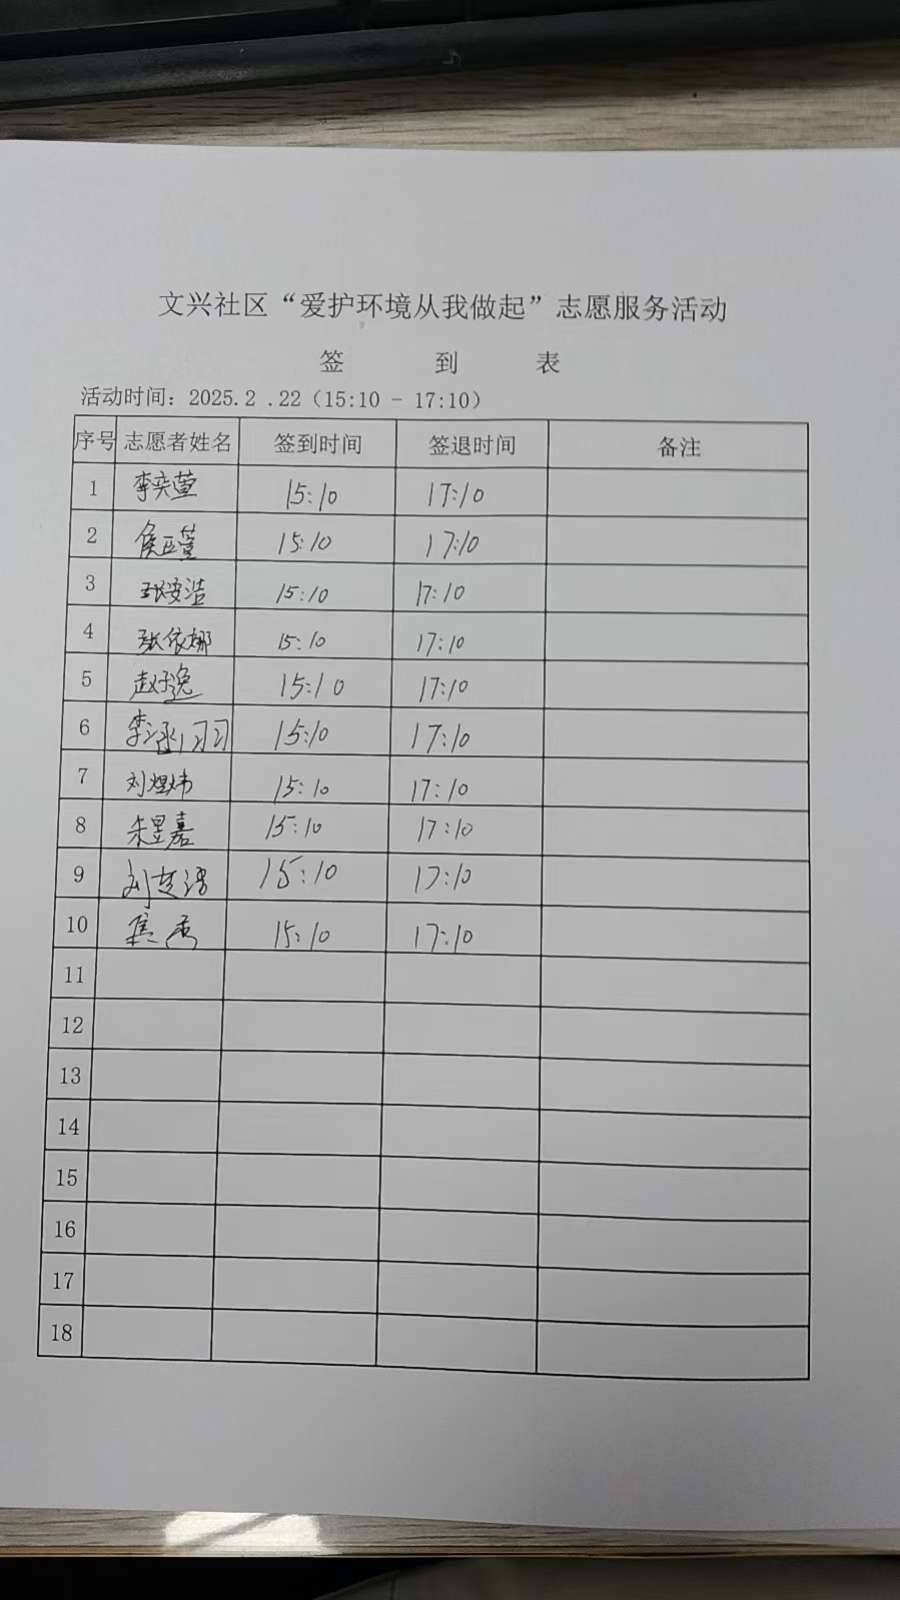 文兴社区“爱护环境从我做起”志愿服务活动
签 到 表
活动时间：2025.2 .22（15:10 - 17:10）
序号 志愿者姓名 签到时间 签退时间 备注
1 李奕萱 15:10 17:10
2 侯正萱 15:10 17:10
3 张安浩 15:10 17:10
4 张依娜 15:10 17:10
5 赵子逸 15:10 17:10
6 李涵 15:10 17:10
7 刘煜炜 15:10 17:10
8 朱昱嘉 15:10 17:10
9 刘 15:10 17:10
10 焦 15:10 17:10
11
12
13
14
15
16
17
18